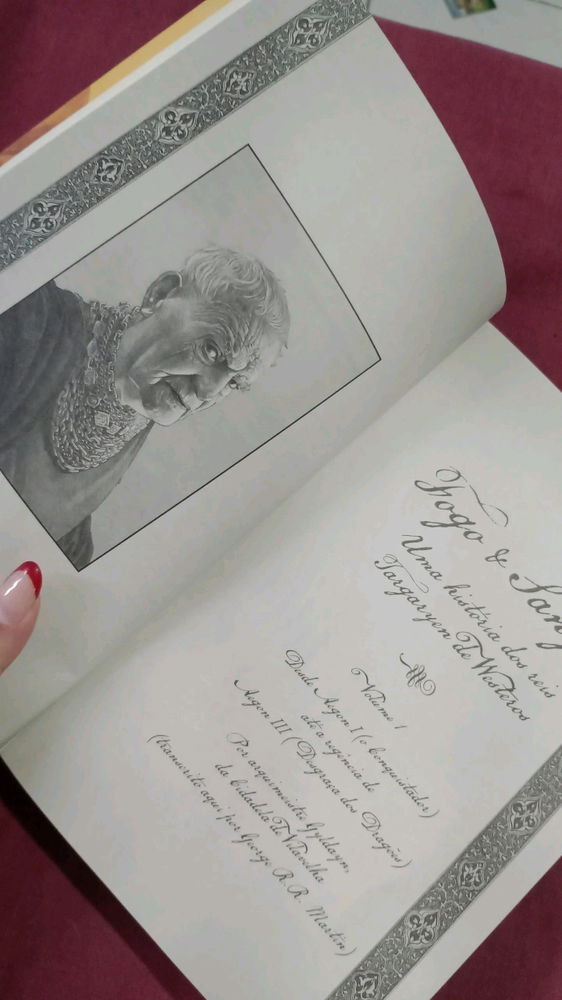 Fogo & San
Uma história dos reis
Targaryen de Westeros
Volume 1
Desde Aegon I (o Conquistador)
até a regência de
Aegon III (Desgraça dos Dragões)
Por arquimeistre Gyldayn,
da Cidadela de Vilavelha
(transcrito aqui por George R. R. Martin)